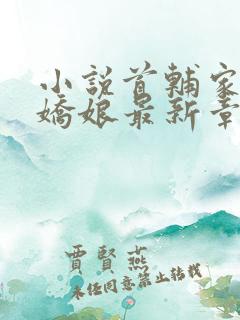 小說首輔家
嬌娘最新章
賈賢燕
未經同意禁止轉載